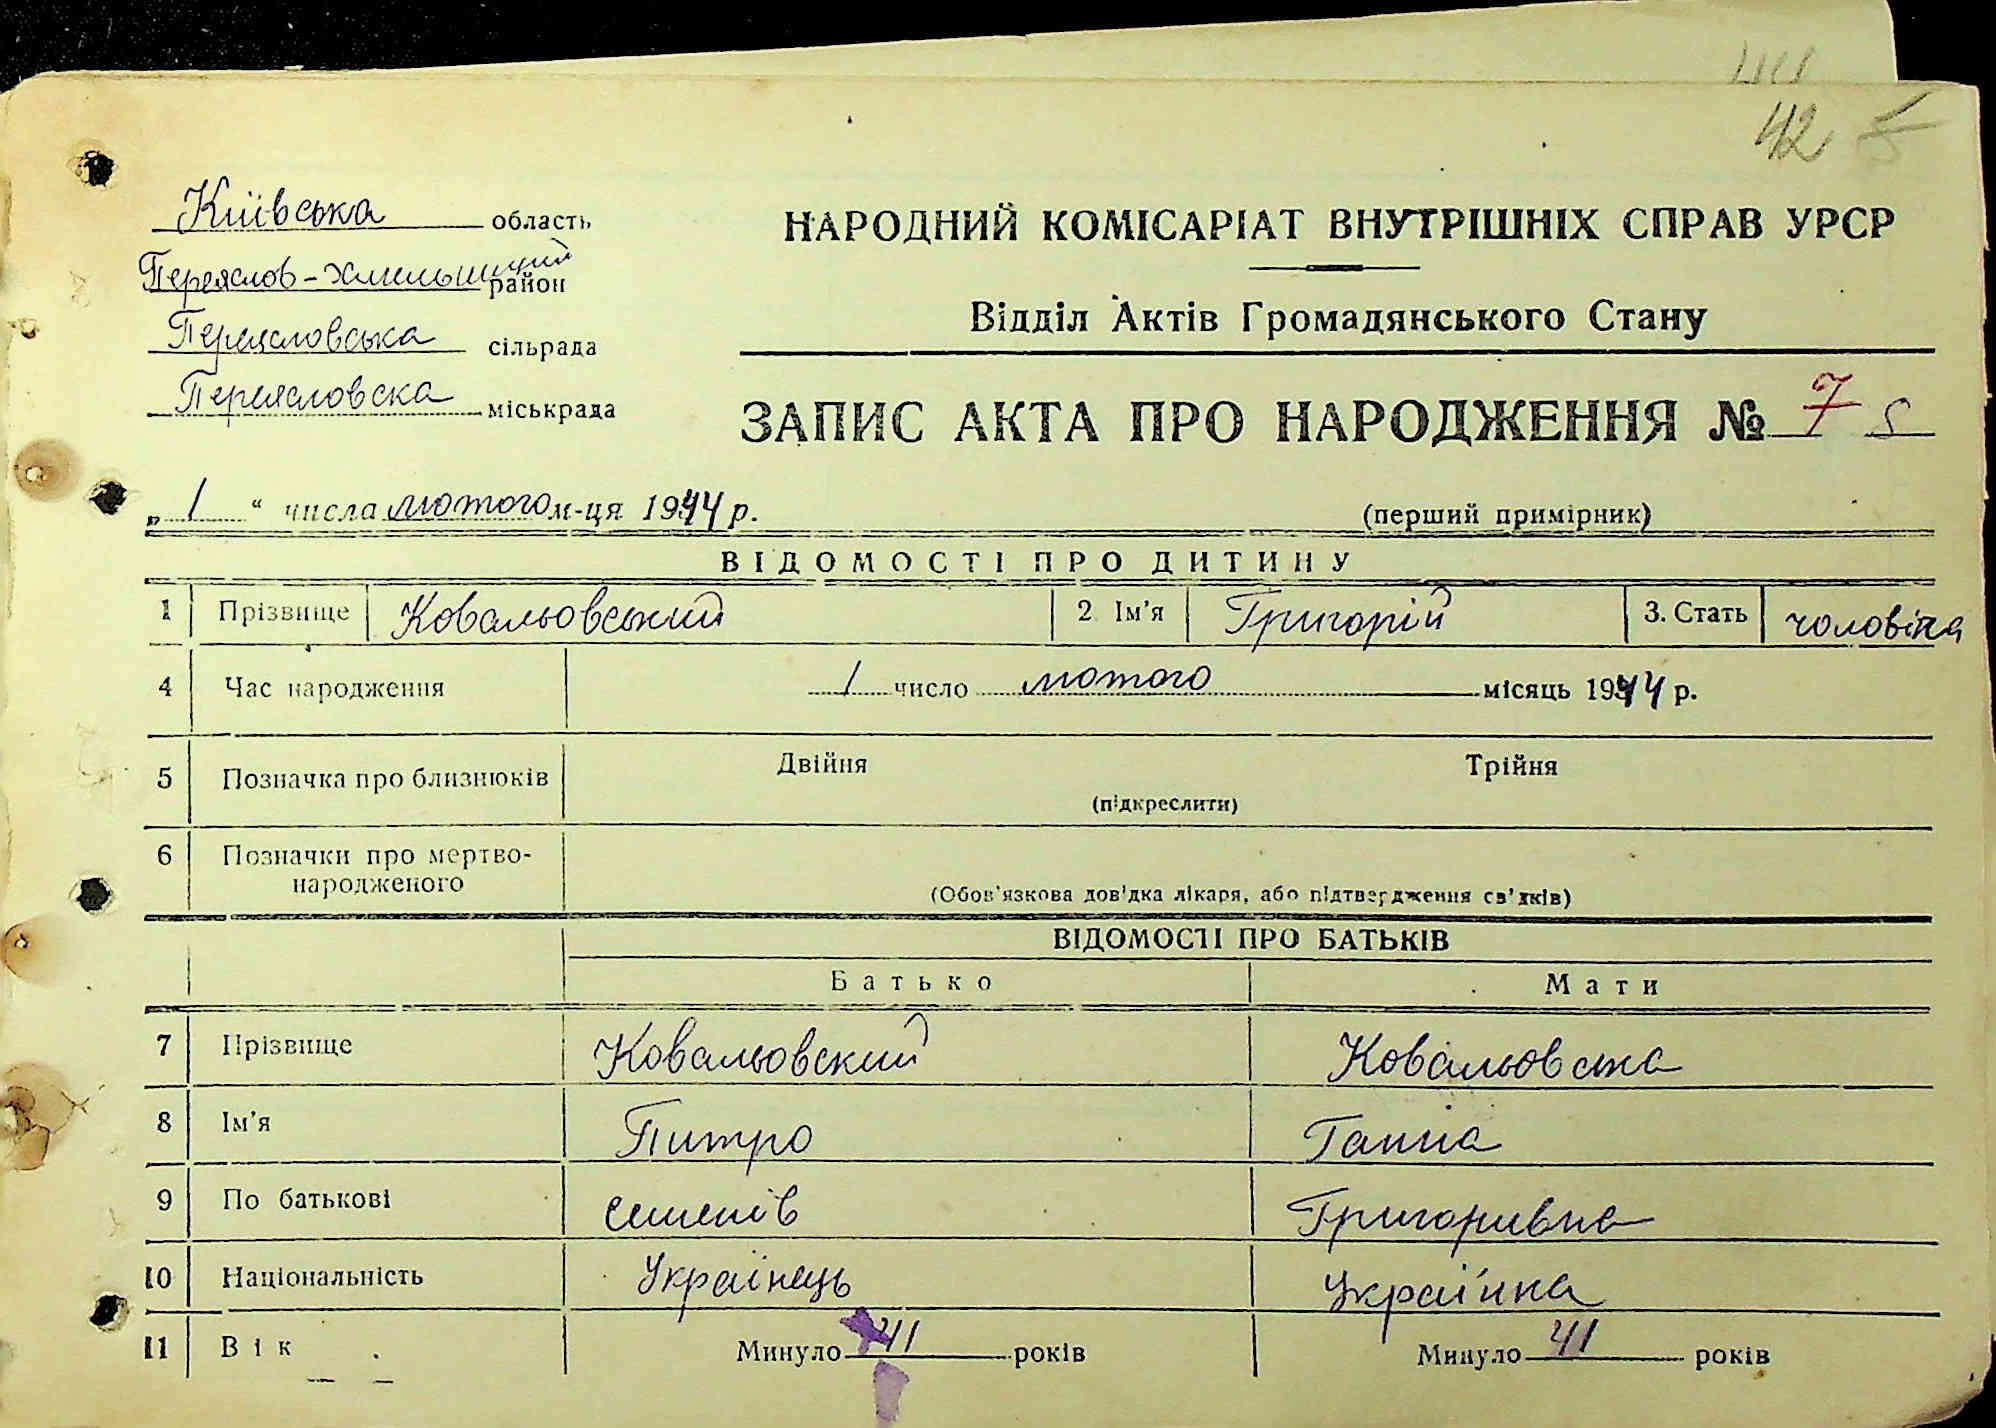 44
42 5
Київська область
Переяслов-Хмельницкий район
Переясловська сільрада
Переясловска міськрада
НАРОДНИЙ КОМІСАРІАТ ВНУТРІШНІХ СПРАВ УРСР
Відділ Актів Громадянського Стану
ЗАПИС АКТА ПРО НАРОДЖЕННЯ № 7 5
„ 1 “ числа лютого м-ця 1944 р.
(перший примірник)
ВІДОМОСТІ ПРО ДИТИНУ
1 Прізвище Ковальовський 2 Ім'я Григорій 3. Стать чоловіча
4 Час народження 1 число лютого місяць 1944 р.
5 Позначка про близнюків Двійня Трійня
(підкреслити)
6 Позначки про мертво-
народженого
(Обов'язкова дов'дка лікаря, або підтвердження св'дків)
ВІДОМОСТІ ПРО БАТЬКІВ
Батько Мати
7 Прізвище Ковальовский Ковальовська
8 Ім'я Питро Ганна
9 По батькові Семенів Григоривна
10 Національність Українець Українка
11 Вік Минуло 41 років Минуло 41 років